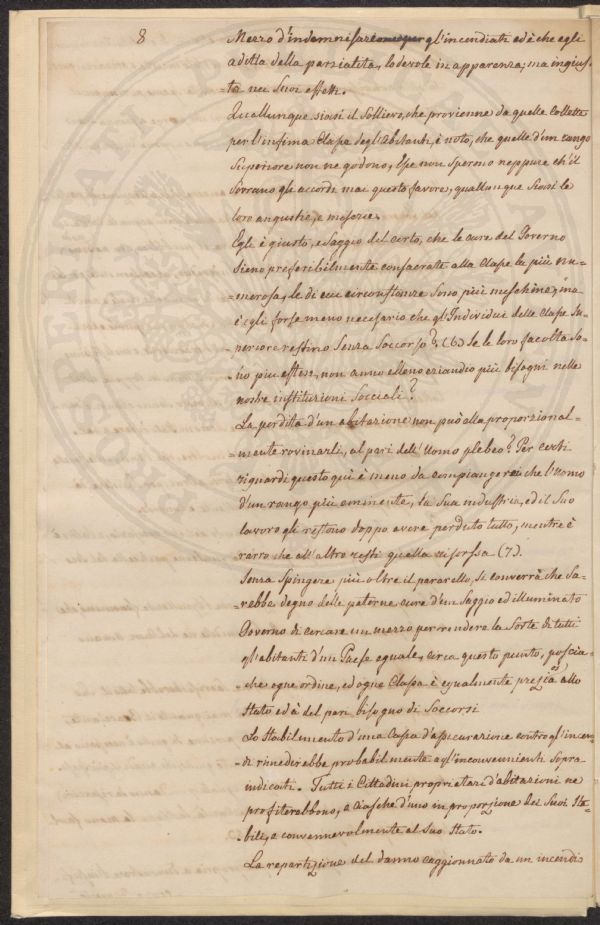 8
Mezzo d'indemnisare gl'incendiati ed è che egli
aditta della parzialità, lodevole in apparenza, ma ingius-
-ta nei suoi effetti.
Quallunque siasi il Sollievo, che provienne da quelle Collette
per l'infima Classe degl'Abitanti, è noto, che quelle d'un rango
Superiore non ne godono, Esse non sperono neppure ch'il
Sovrano gli accordi mai questo favore, quallunque siasi le
loro angustie, e miserie.
Egli è giusto, e saggio del certo, che le cure del Governo
Sieno preferibilmente consacrate alla Classe la più nu-
-merosa, le di cui circonstanze sono più meschine, ma
è egli forse meno necessario che gl'Individui delle Classe Su-
-periore restino Senza Soccorso? (6) Se le loro facoltà so-
-no più estese, non anno elleno eziandio più bisogni nelle
nostre instituzioni Sociali?
La perdita d'un abitazione non può alla proporzional-
-mente rovinarli, al pari dell'Uomo plebeo? Per certi
riguardi questo quì è meno da compiangersi che l'Uomo
d'un rango più eminente, la Sua industria, ed il Suo
lavoro gli restono doppo avere perduto tutto, mentre è
rarro che all'altro resti quella risforssa (7).
Senza Spingere più oltre il pararello, si converrà che Sa-
-rebbe degno delle paterne cure d'un Saggio ed illuminato
Governo di cercare un mezzo per rendere la Sorte di tutti
gl'abitanti d'un Paese eguale, circa questo punto, poscia-
-che ogne ordine, ed ogne Classa è egualmente prezioso allo
Stato ed à del pari bisogno di Soccorsi
Lo Stabilmento d'una Cassa d'assicurazione contro gl'incen-
di rimederebbe probabilmente agl'inconvenienti Sopra
indicati. Tutti i Cittadini proprietari d'abitazioni ne
profiterabbono, e ciasche d'uno in proporzione dei Suoi Sta-
-bili, e convennevolmente al Suo Stato.
La repartizione del danno caggionnato da un incendio